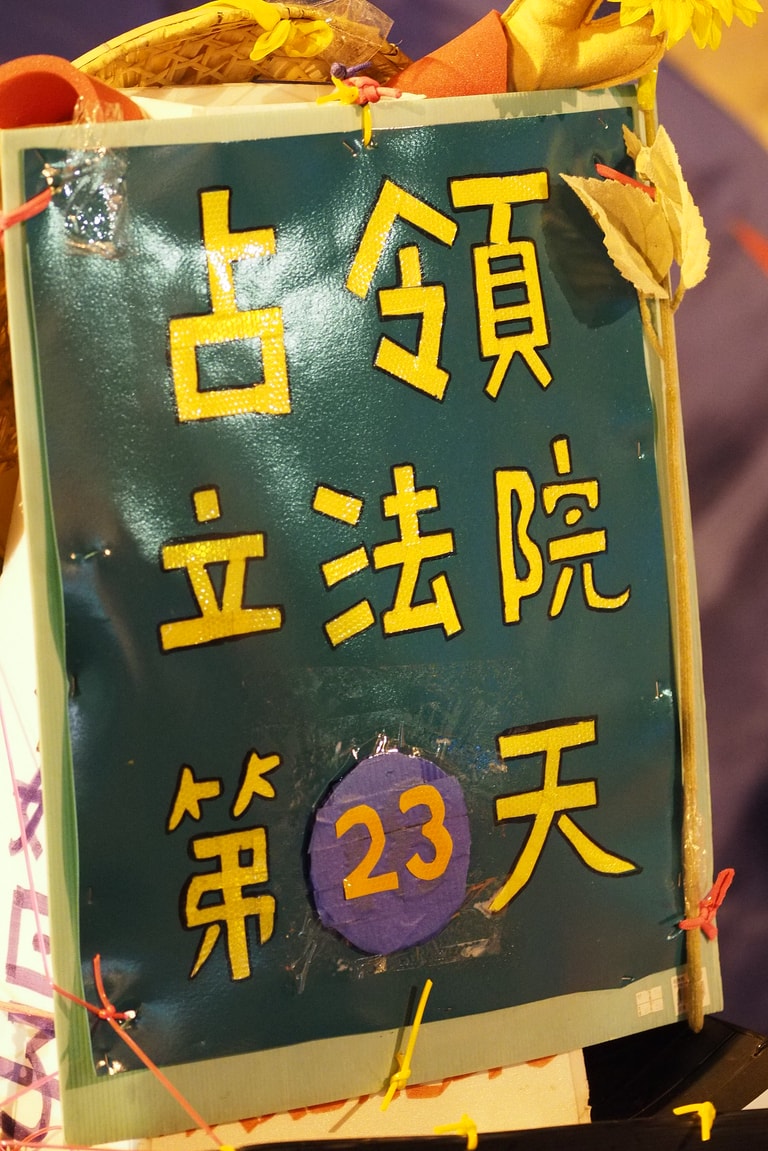 占領
立法院
第23天